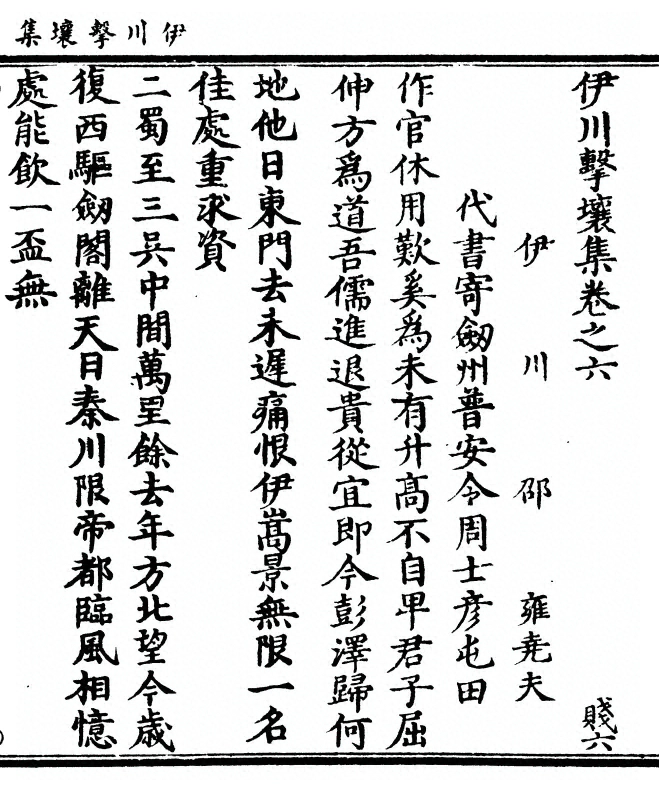 伊川擊壤集
伊川擊壤集卷之六
賤六
伊川邵雍堯夫
代書寄劒州普安令周士彥屯田
作官休用歎奚爲未有升高不自卑君子屈
伸方爲道吾儒進退貴從宜即今彭澤歸何
地他日東門去未遲痛恨伊嵩景無限一名
佳處重求資
二蜀至三吳中間萬里餘去年方北望今歲
復西驅劒閣離天日秦川限帝都臨風相憶
處能飲一盃無